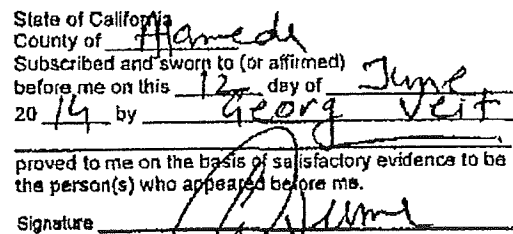 State of California
County of Alameda
Subscribed and sworn to (or affirmed)
before me on this 12 day of June
2014 by Georg Veit
proved to me on the basis of satisfactory evidence to be
the person(s) who appeared before me.
Signature